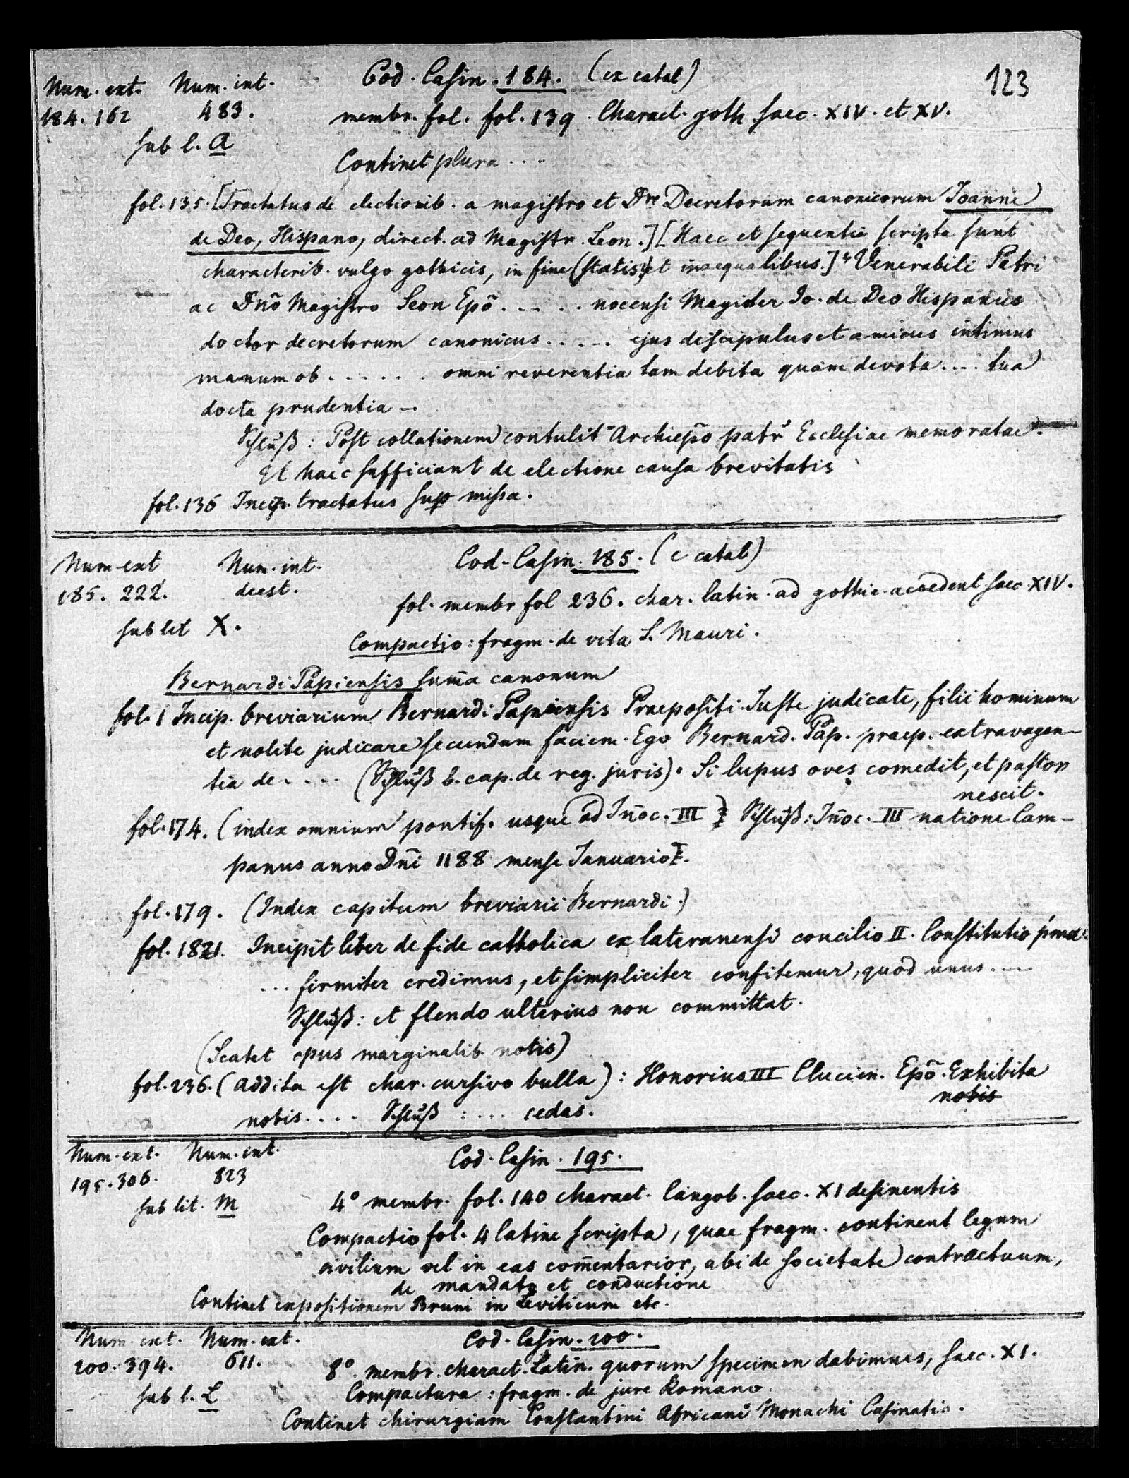 123
Num. ext. Num. int. Cod. Casin. 184. (ex catal)
184. 162 483. membr. fol. fol. 139. Charact. goth saec. XIV. et XV.
sub l. A
Continet plura ...
fol. 135. [Tractatus de electionib. a magistro et Dne Decretorum canonicorum Joanne
de Deo, Hispano, direct. ad Magistr. Leon.] [Haec et sequentia scripta sunt
characterib. vulgo gothicis, in fine (statis) et inaequalibus.] Venerabili Patri
ac Dño Magistro Leon Epõ ..... nocensi Magister Jo. de Deo Hispanus
doctor decretorum canonicus ..... ejus discipulus et amicus intimus
manum ob ...... omni reverentia tam debita quam devota .... tua
docta prudentia —
Schluß: Post collationem contulit Archiepõ patr Ecclesiae memoratae.
Et haec sufficiant de electione causa brevitatis
fol. 136 Incip. tractatus sup missa.
Num ext Num. int. Cod. Casin. 185. (e catal)
185. 222. deest. fol. membr fol 236. char. latin. ad gothic. accedent saec XIV.
sub lit X.
Compactio: fragm. de vita S. Mauri.
Bernardi Papiensis suma canonum
fol. 1 Incip. breviarium Bernardi Papiensis Praepositi. Juste judicate, filii hominum
et nolite judicare secundum faciem. Ego Bernard. Pap. praep. extravagan-
tia de .... (Schluß b. cap. de reg. juris). Si lupus oves comedit, et pastor
nescit.
fol. 174. (index omnium pontif. usque ad Iñoc. III) Schluß: Iñoc. III natione Cam-
panus anno Dni 1188 mense Januario.
fol. 179. (Index capitum breviarii Bernardi.)
fol. 181. Incipit liber de fide catholica ex lateranensi concilio II. Constitutio pma.
... firmiter credimus, et simpliciter confitemur, quod unus ...
Schluß: et flendo ulterius non committat.
(Scatet opus marginalib notis)
fol. 236. (addita est char. cursivo bulla): Honorius III Clucien. Epõ. Exhibita
nobis
nobis .... Schluß: .... cedas.
Num. ext. Num. int. Cod. Casin. 195.
195. 306. 823
sub lit. M 4° membr. fol. 140 charact. langob. saec. XI desinentis
Compactio fol. 4 latine scripta, quae fragm. continent legum
civilium vel in eas comentarior, ubi de societate contractuum,
de mandato et conductione
Continet expositionem Bruni in Leviticum etc.
Num. ext. Num. int. Cod. Casin. 200.
200. 394. 611. 8° membr. charact. Latin. quorum specimen dabimus, saec. XI.
sub l. L Compactura: fragm. de jure Romano
Continet chirurgiam Constantini Africani Monachi Casinatis.